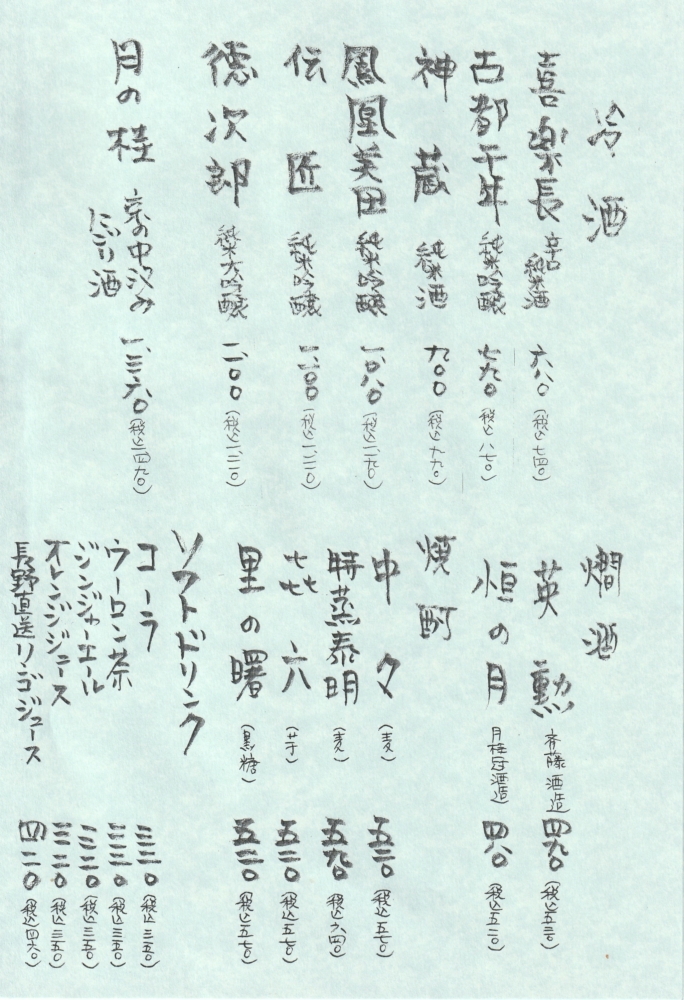 冷酒
喜楽長 辛口 純米酒 六八〇 (税込七四〇)
古都千年 純米吟醸 七九〇 (税込八七〇)
神蔵 純米酒 九〇〇 (税込九九〇)
鳳凰美田 純米吟醸 一、〇八〇 (税込一、一九〇)
伝匠 純米吟醸 一、一〇〇 (税込一、二一〇)
徳次郎 純米大吟醸 一、一〇〇 (税込一、二一〇)
月の桂 京の中汲み にごり酒 一、三六〇 (税込一、四九〇)
燗酒
英勲 斉藤酒造 四九〇 (税込五三〇)
恒の月 月桂冠酒造 四八〇 (税込五二〇)
焼酎
中々 (麦) 五二〇 (税込五七〇)
特蒸泰明 (麦) 五九〇 (税込六四〇)
㐂六 (芋) 五二〇 (税込五七〇)
里の曙 (黒糖) 五二〇 (税込五七〇)
ソフトドリンク
コーラ 三二〇 (税込三五〇)
ウーロン茶 三二〇 (税込三五〇)
ジンジャーエール 三二〇 (税込三五〇)
オレンジジュース 三二〇 (税込三五〇)
長野直送リンゴジュース 四二〇 (税込四六〇)